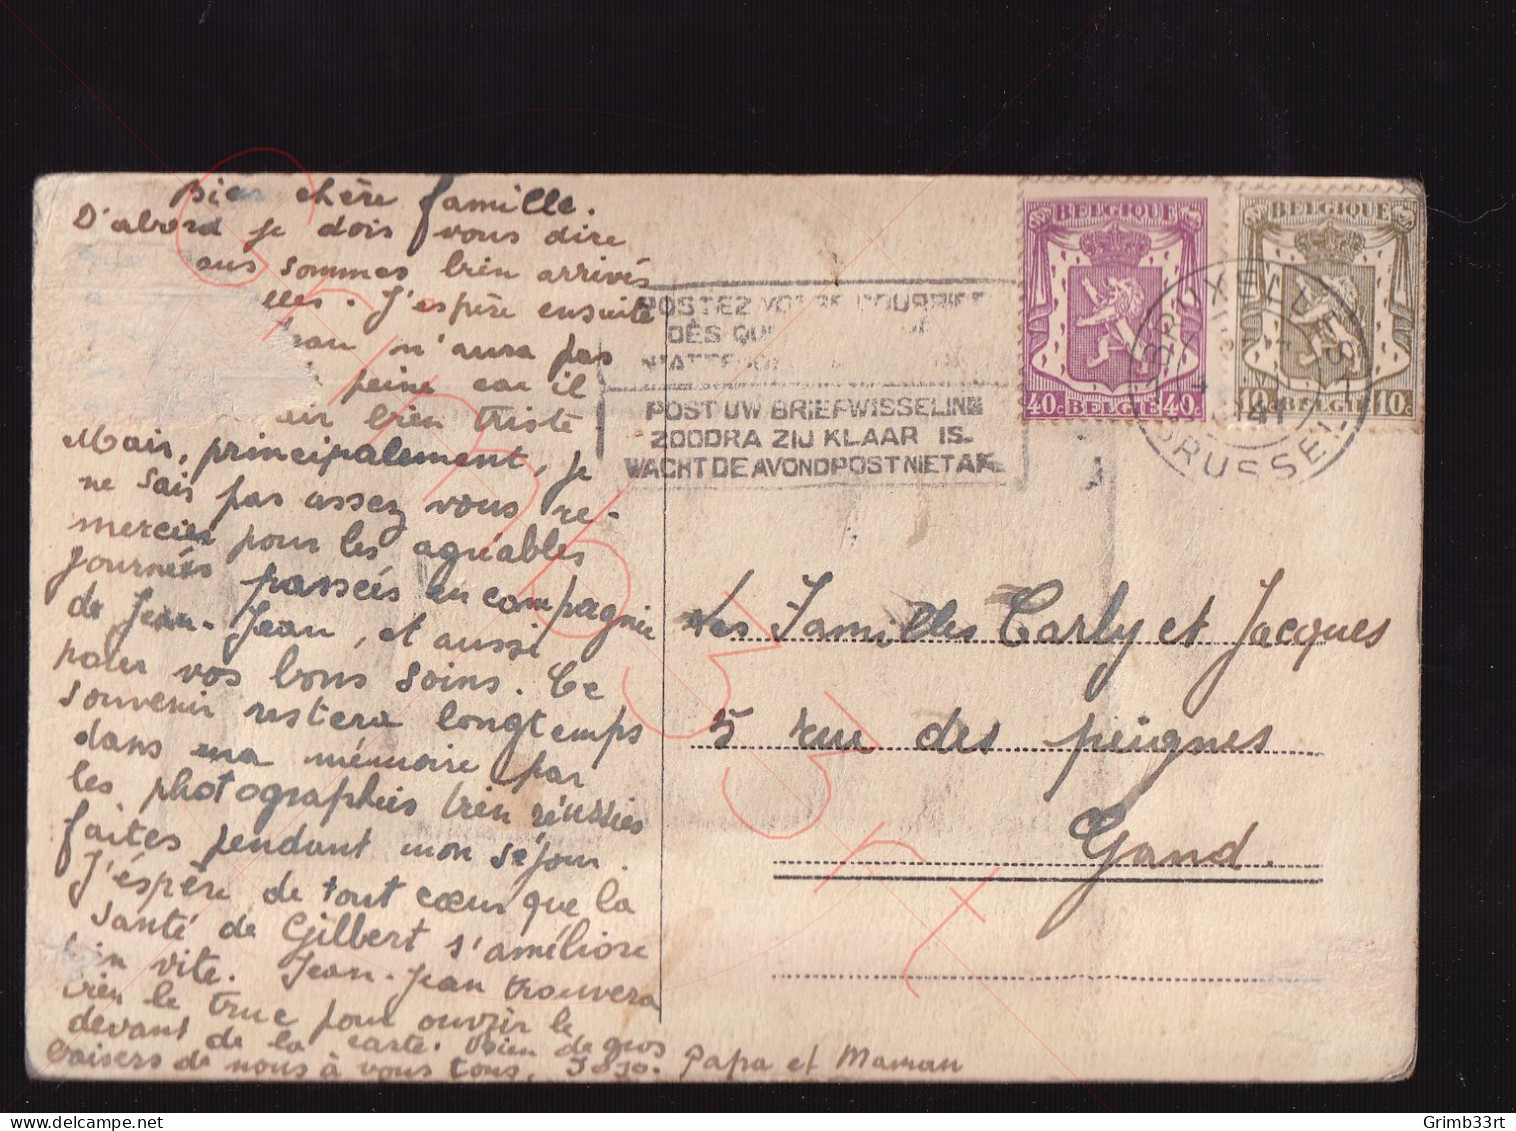 Bien chère famille.
D'abord je dois vous dire
sommes bien arrivés
lles. J'espère ensuite
n'aura pas
peine car il
air bien triste
Mais, principalement, je
ne sais pas assez vous re-
mercier pour les agréables
journées passées en compagnie
de Jean-Jean, et aussi
pour vos bons soins. Ce
souvenir restera longtemps
dans ma mémoire par
les photographies bien réussies
faites pendant mon séjour.
J'éspère de tout cœur que la
santé de Gilbert s'améliore
bien vite. Jean-Jean trouvera
bien le truc pour ouvrir le
devant de la carte. Bien de gros
baisers de nous à vous tous. Jojo. Papa et Maman
POSTEZ VOTRE COURRIER
DÈS QU
N'ATTEND
POST UW BRIEFWISSELING
ZOODRA ZIJ KLAAR IS.
WACHT DE AVONDPOST NIET AF.
BELGIQUE
40c BELGIË 40c
BELGIQUE
10c BELGIË 10c
BRUXELLES
41
BRUSSEL
Les Familles Carly et Jacques
5 rue des peignes
Gand.
Grimb33rt
Grimb33rt